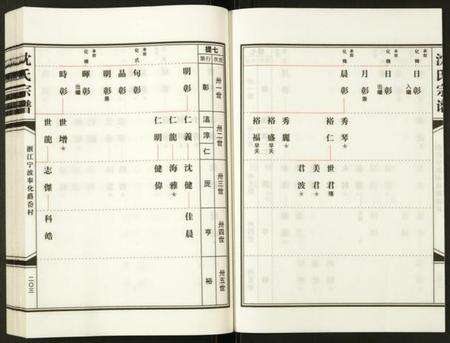 沈氏宗譜
日彰 入繼
日彰 出繼
月彰
晨彰 裕仁 世君
秀琴 美君
秀麗 君波
裕盛 早夭
裕福 早夭
行第
卅一世 卅二世 卅三世 卅四世 卅五世
彰 淳 仁 亨 裕
明彰 仁義 沈健 佳晨
仁龍 海雅
仁明 健偉
旬彰
晶彰
明彰
暉彰 出繼
時彰 世增
世龍 志傑 科皓
沈氏宗譜
浙江宁波奉化
岙村
二〇三